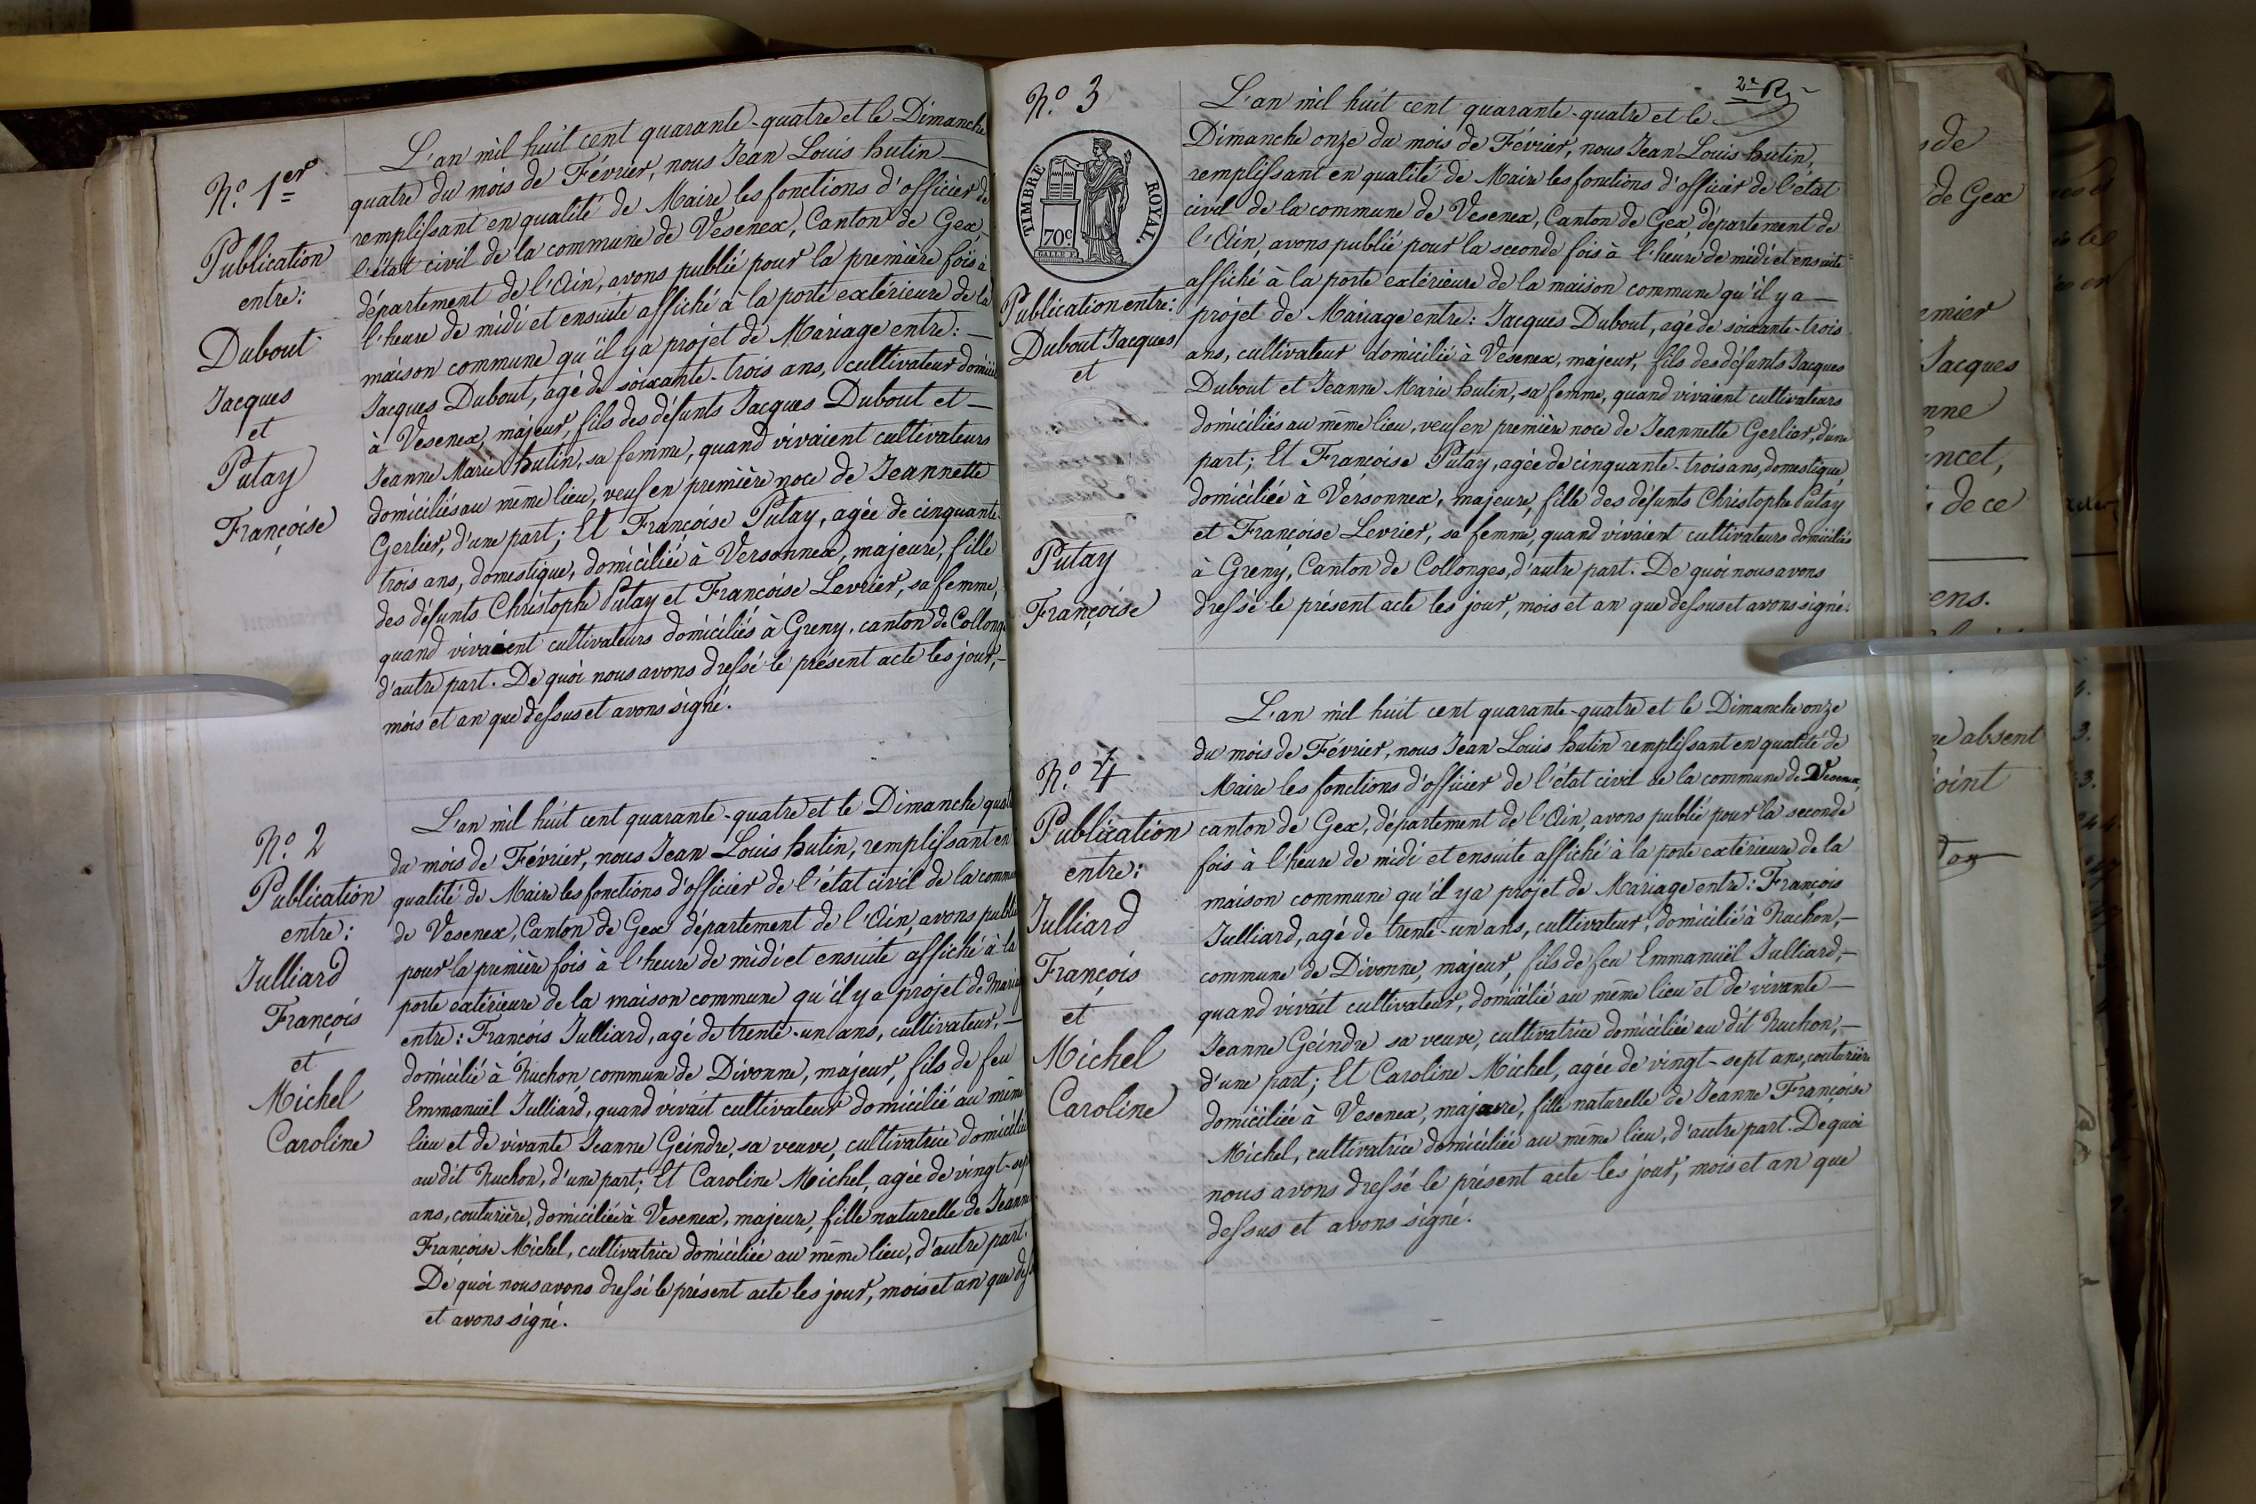 N.º 1.er
Publication
entre:
Dubout
Jacques
et
Putay
Françoise
L'an mil huit cent quarante-quatre et le Dimanche
quatre du mois de Février, nous Jean Louis hutin
remplissant en qualité de Maire les fonctions d'officier de
l'état civil de la commune de Vesenex, Canton de Gex
département de l'Ain, avons publié pour la première fois à
l'heure de midi et ensuite affiché à la porte extérieure de la
maison commune qu'il y a projet de Mariage entre: —
Jacques Dubout, agé de soixante-trois ans, cultivateur domicil
à Vesenex, majeur, fils des défunts Jacques Dubout et —
Jeanne Marie hutin, sa femme, quand vivaient cultivateurs
domiciliés au même lieu, veuf en première noce de Jeannette
Gerlier, d'une part; Et Françoise Putay, agée de cinquante-
trois ans, domestique, domiciliée à Versonnex, majeure, fille
des défunts Christophe Putay et Francoise Levrier, sa femme,
quand vivaient cultivateurs domiciliés à Greny, canton de Collong
d'autre part. De quoi nous avons dressé le présent acte les jour,—
mois et an que dessus et avons signé.
N.º 2
Publication
entre:
Julliard
François
et
Michel
Caroline
L'an mil huit cent quarante-quatre et le Dimanche quat
du mois de Février, nous Jean Louis hutin, remplissant en
qualité de Maire les fonctions d'officier de l'état civil de la comm
de Vesenex, Canton de Gex département de l'Ain, avons publi
pour la première fois à l'heure de midi et ensuite affiché à la
porte extérieure de la maison commune qu'il y a projet de Maria
entre: François Julliard, agé de trente-un ans, cultivateur, —
domicilié à Ruchon commune de Divonne, majeur, fils de feu
Emmanuël Julliard, quand vivait cultivateur domicilié au même
lieu et de vivante Jeanne Geindre, sa veuve, cultivatrice domicilié
au dit Ruchon, d'une part; Et Caroline Michel, agée de vingt-sep
ans, couturière, domiciliée à Vesenex, majeure, fille naturelle de Jeann
Françoise Michel, cultivatrice domiciliée au même lieu, d'autre part.
De quoi nous avons dressé le présent acte les jour, mois et an que dess
et avons signé.
N.º 3
TIMBRE ROYAL.
70c
Publication entre:
Dubout Jacques
et
Putay
Françoise
2e
L'an mil huit cent quarante-quatre et le
Dimanche onze du mois de Février, nous Jean Louis hutin,
remplissant en qualité de Maire les fonctions d'officier de l'état
civil de la commune de Vesenex, Canton de Gex département de
l'Ain, avons publié pour la seconde fois à l'heure de midi et ensuite
affiché à la porte extérieure de la maison commune qu'il y a —
projet de Mariage entre: Jacques Dubout, agé de soixante-trois
ans, cultivateur domicilié à Vesenex, majeur, fils des défunts Jacques
Dubout et Jeanne Marie hutin, sa femme, quand vivaient cultivateurs
domiciliés au même lieu, veuf en première noce de Jeannette Gerlier, d'une
part; Et Françoise Putay, agée de cinquante-trois ans, domestique
domiciliée à Versonnex, majeure, fille des défunts Christophe Putay
et Françoise Levrier, sa femme, quand vivaient cultivateurs domiciliés
à Greny, Canton de Collonges, d'autre part. De quoi nous avons
dressé le présent acte les jour, mois et an que dessus et avons signé.
N.º 4
Publication
entre:
Julliard
François
et
Michel
Caroline
L'an mil huit cent quarante-quatre et le Dimanche onze
du mois de Février, nous Jean Louis hutin remplissant en qualité de
Maire les fonctions d'officier de l'état civil de la commune de Vesenex,
canton de Gex, département de l'Ain, avons publié pour la seconde
fois à l'heure de midi et ensuite affiché à la porte extérieure de la
maison commune qu'il y a projet de Mariage entre: François
Julliard, agé de trente-un ans, cultivateur, domicilié à Ruchon,—
commune de Divonne, majeur, fils de feu Emmanuël Julliard,—
quand vivait cultivateur, domicilié au même lieu et de vivante —
Jeanne Geindre sa veuve, cultivatrice domiciliée au dit Ruchon,—
d'une part; Et Caroline Michel, agée de vingt-sept ans, couturière
domiciliée à Vesenex, majeure, fille naturelle de Jeanne Françoise
Michel, cultivatrice domiciliée au même lieu, d'autre part. De quoi
nous avons dressé le présent acte les jour, mois et an que
dessus et avons signé.
de
de Gex
emier
Jacques
nne
ncet,
de ce
ens.
absent
joint